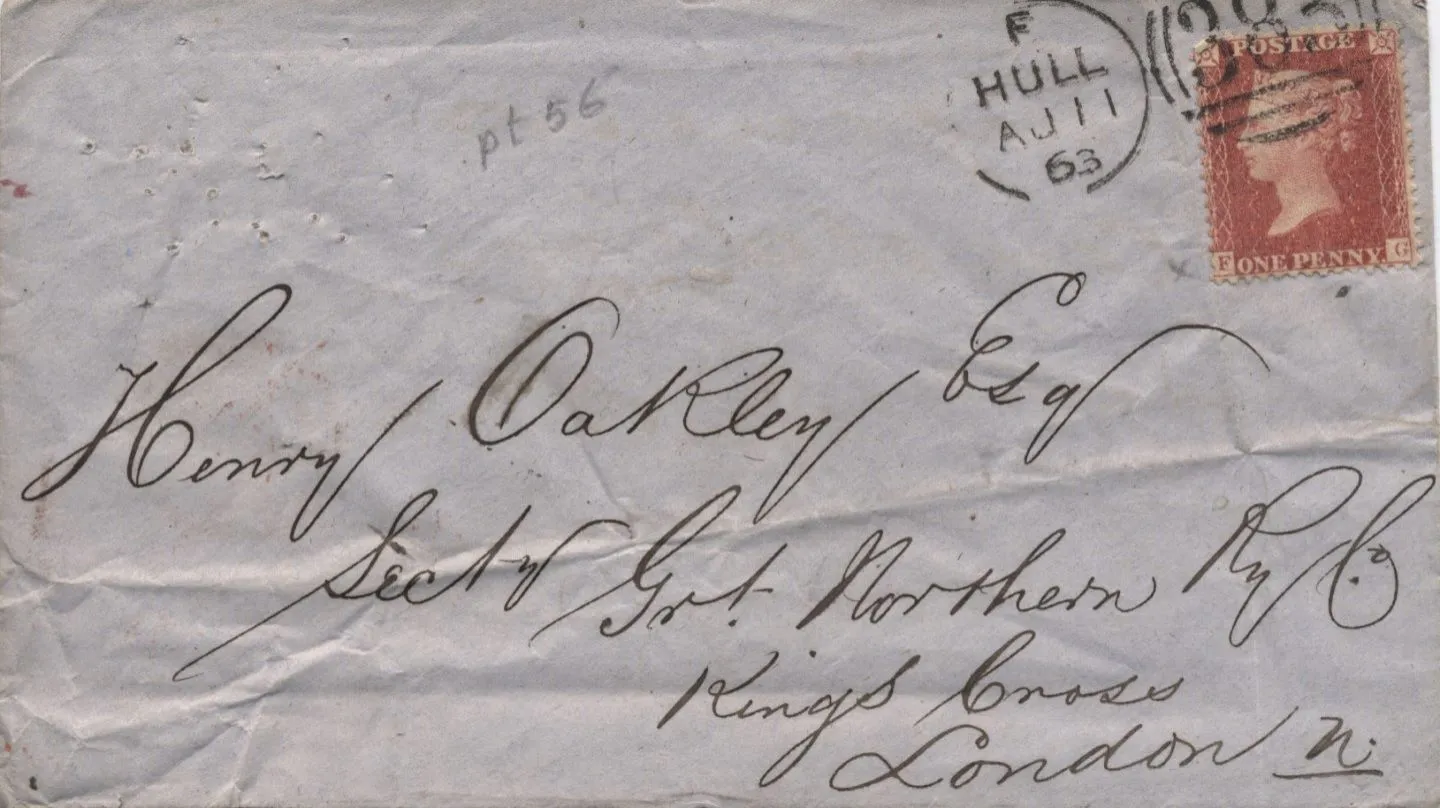 F
HULL
AU 11
63
383
POSTAGE
F ONE PENNY G
pt 56
Henry Oakley Esq
Secty Grt. Northern Ry Co
Kings Cross
London N.